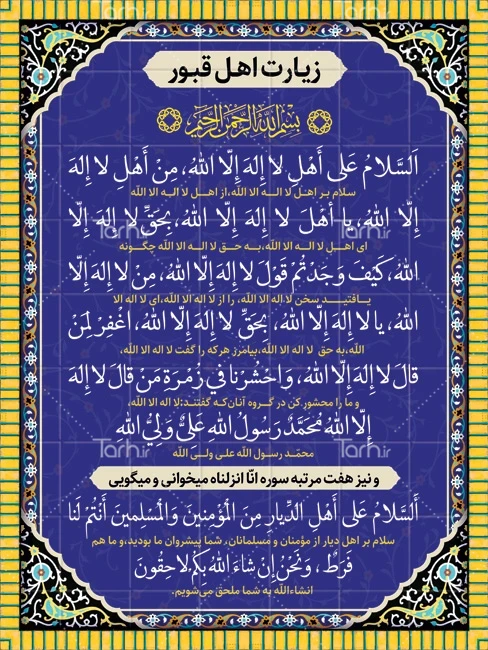 زیارت اهل قبور
بِسْمِ اللهِ الرَّحْمنِ الرَّحیمِ
اَلسَّلامُ عَلی أَهْلِ لا إِلهَ إِلَّا اللهُ، مِنْ أَهْلِ لا إِلهَ
سلام بر اهل لا اله الا اللّه، از اهل لا اله الا اللّه
إِلَّا اللهُ، یا أَهْلَ لا إِلهَ إِلَّا اللهُ، بِحَقِّ لا إِلهَ إِلَّا
ای اهل لا اله الا اللّه، به حق لا اله الا اللّه چگونه
اللهُ، کَیْفَ وَجَدْتُمْ قَوْلَ لا إِلهَ إِلَّا اللهُ، مِنْ لا إِلهَ إِلَّا
یافتید سخن لا اله الا اللّه، را از لا اله الا اللّه، ای لا اله الا
اللهُ، یا لا إِلهَ إِلَّا اللهُ، بِحَقِّ لا إِلهَ إِلَّا اللهُ، اغْفِرْ لِمَنْ
اللّه، به حق لا اله الا اللّه، بیامرز هرکه را گفت لا اله الا اللّه،
قالَ لا إِلهَ إِلَّا اللهُ، وَاحْشُرْنا فی زُمْرَةِ مَنْ قالَ لا إِلهَ
و ما را محشور کن در گروه آنان که گفتند: لا اله الا اللّه،
إِلَّا اللهُ مُحَمَّدٌ رَسُولُ اللهِ عَلِیٌّ وَلِیُّ اللهِ
محمّد رسول اللّه علی ولیّ اللّه
و نیز هفت مرتبه سوره انّا انزلناه میخوانی و میگویی
أَلسَّلامُ عَلی أَهْلِ الدِّیارِ مِنَ الْمُؤْمِنینَ وَالْمُسلِمینَ أَنْتُمْ لَنا
سلام بر اهل دیار از مؤمنان و مسلمانان، شما پیشروان ما بودید، و ما هم
فَرَطٌ، وَنَحْنُ إِنْ شاءَ اللهُ بِکُمْ لاحِقُونَ
انشاءاللّه به شما ملحق می‌شویم.
Tarh.ir